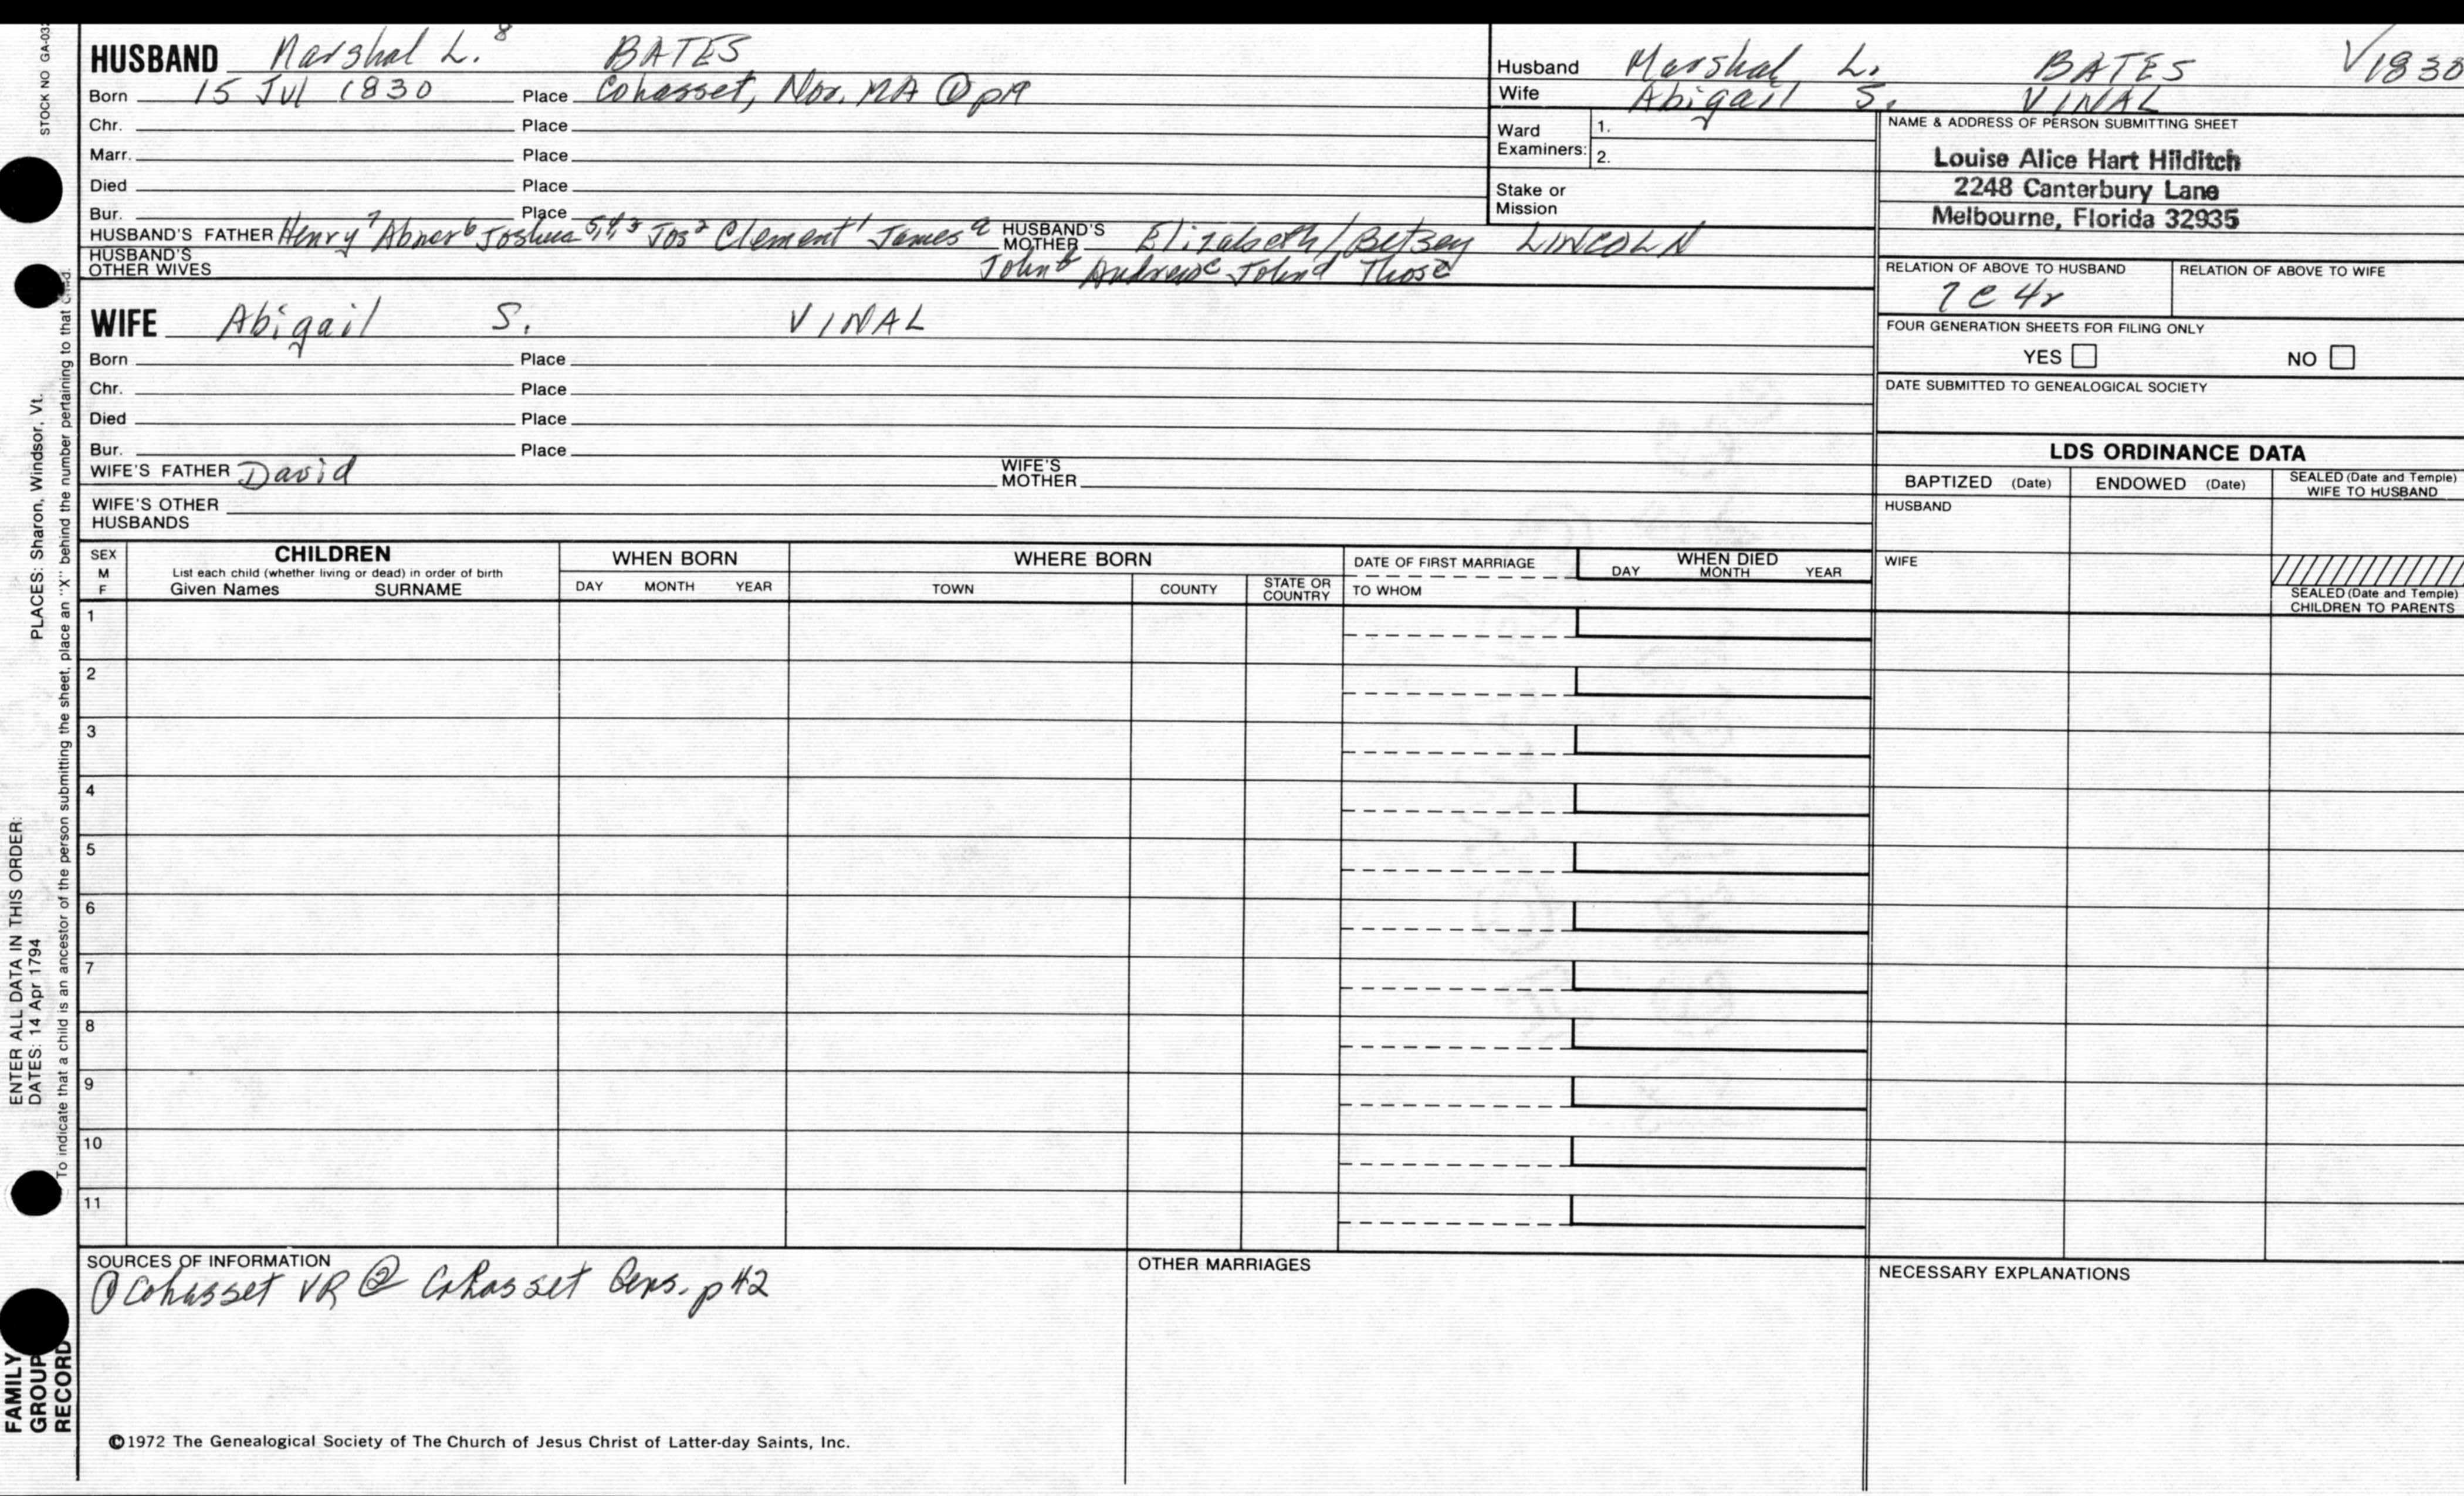 STOCK NO GA-03
HUSBAND Marshal L.⁸ BATES
Born 15 Jul 1830 Place Cohasset, Nor. MA ① p19
Chr. Place
Marr. Place
Died Place
Bur. Place
HUSBAND'S FATHER Henry⁷ Abner⁶ Joshua⁵,⁴,³ Jos² Clement¹ James ᵃ HUSBAND'S MOTHER Elizabeth/Betsey LINCOLN
HUSBAND'S OTHER WIVES John ᵇ Andrew ᶜ John ᵈ Thos ᵉ
Husband Marshal L. BATES V1830
Wife Abigail S. VINAL
Ward Examiners: 1.
2.
Stake or Mission
NAME & ADDRESS OF PERSON SUBMITTING SHEET
Louise Alice Hart Hilditch
2248 Canterbury Lane
Melbourne, Florida 32935
RELATION OF ABOVE TO HUSBAND RELATION OF ABOVE TO WIFE
7C4r
FOUR GENERATION SHEETS FOR FILING ONLY
YES NO
DATE SUBMITTED TO GENEALOGICAL SOCIETY
WIFE Abigail S. VINAL
Born Place
Chr. Place
Died Place
Bur. Place
WIFE'S FATHER David WIFE'S MOTHER
WIFE'S OTHER HUSBANDS
LDS ORDINANCE DATA
BAPTIZED (Date) ENDOWED (Date) SEALED (Date and Temple) WIFE TO HUSBAND
HUSBAND
WIFE
SEALED (Date and Temple) CHILDREN TO PARENTS
SEX M F
CHILDREN
List each child (whether living or dead) in order of birth
Given Names SURNAME
WHEN BORN
DAY MONTH YEAR
WHERE BORN
TOWN COUNTY STATE OR COUNTRY
DATE OF FIRST MARRIAGE
TO WHOM
WHEN DIED
DAY MONTH YEAR
1
2
3
4
5
6
7
8
9
10
11
SOURCES OF INFORMATION
① Cohasset VR ② Cohasset Gens. p42
OTHER MARRIAGES
NECESSARY EXPLANATIONS
©1972 The Genealogical Society of The Church of Jesus Christ of Latter-day Saints, Inc.
ENTER ALL DATA IN THIS ORDER:
DATES: 14 Apr 1794 PLACES: Sharon, Windsor, Vt.
To indicate that a child is an ancestor of the person submitting the sheet, place an "X" behind the number pertaining to that child.
FAMILY GROUP RECORD